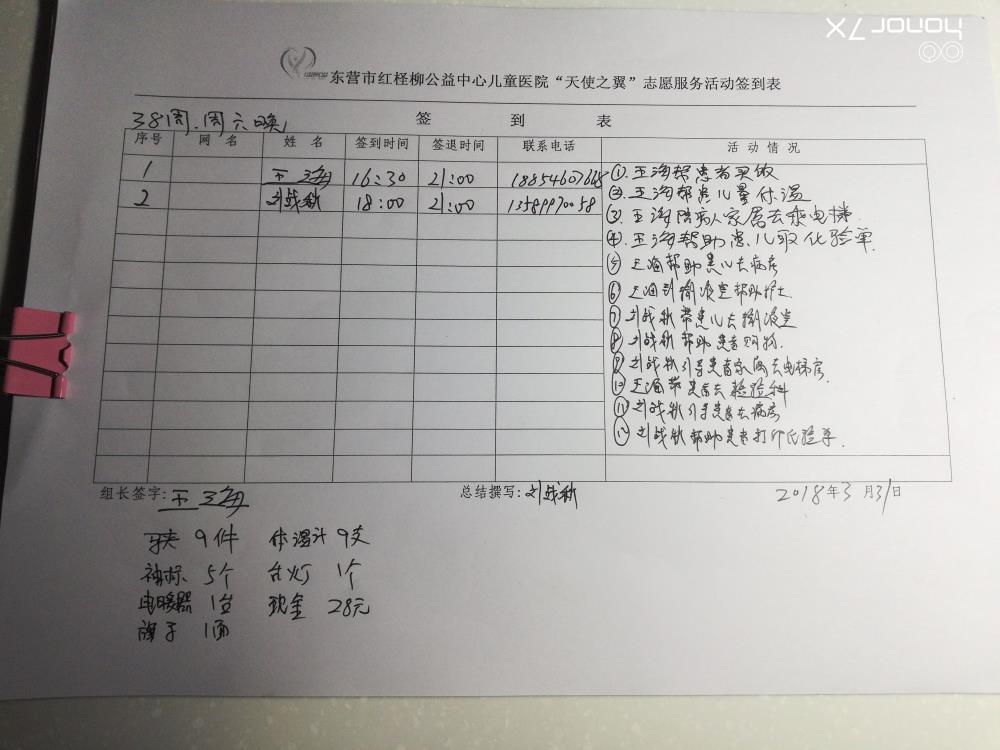 honor 7X
东营市红柽柳公益中心儿童医院“天使之翼”志愿服务活动签到表
38周.周六晚
签 到 表
序号 网 名 姓 名 签到时间 签退时间 联系电话 活 动 情 况
1 王海 16:30 21:00 ①.王海帮患者买饭
2 刘战秋 18:00 21:00 13589970058 ②.王海帮患儿量体温
③.王海陪病人家属去乘电梯.
④.王海帮助患儿取化验单.
⑤ 王海帮助患儿去病房
⑥ 王海到输液室帮助护士
⑦ 刘战秋带患儿去输液室
⑧ 刘战秋帮助患者购物.
⑨ 刘战秋引导患者家属去电梯房.
⑩ 王海带患者去检验科
⑪ 刘战秋引导患者去病房
⑫ 刘战秋帮助患者打印化验单.
组长签字:王海 总结撰写:刘战秋 2018年3月31日
9件 体温计 9支
袖标 5个 台灯 1个
电暖器 1台 现金 28元
旗子 1面